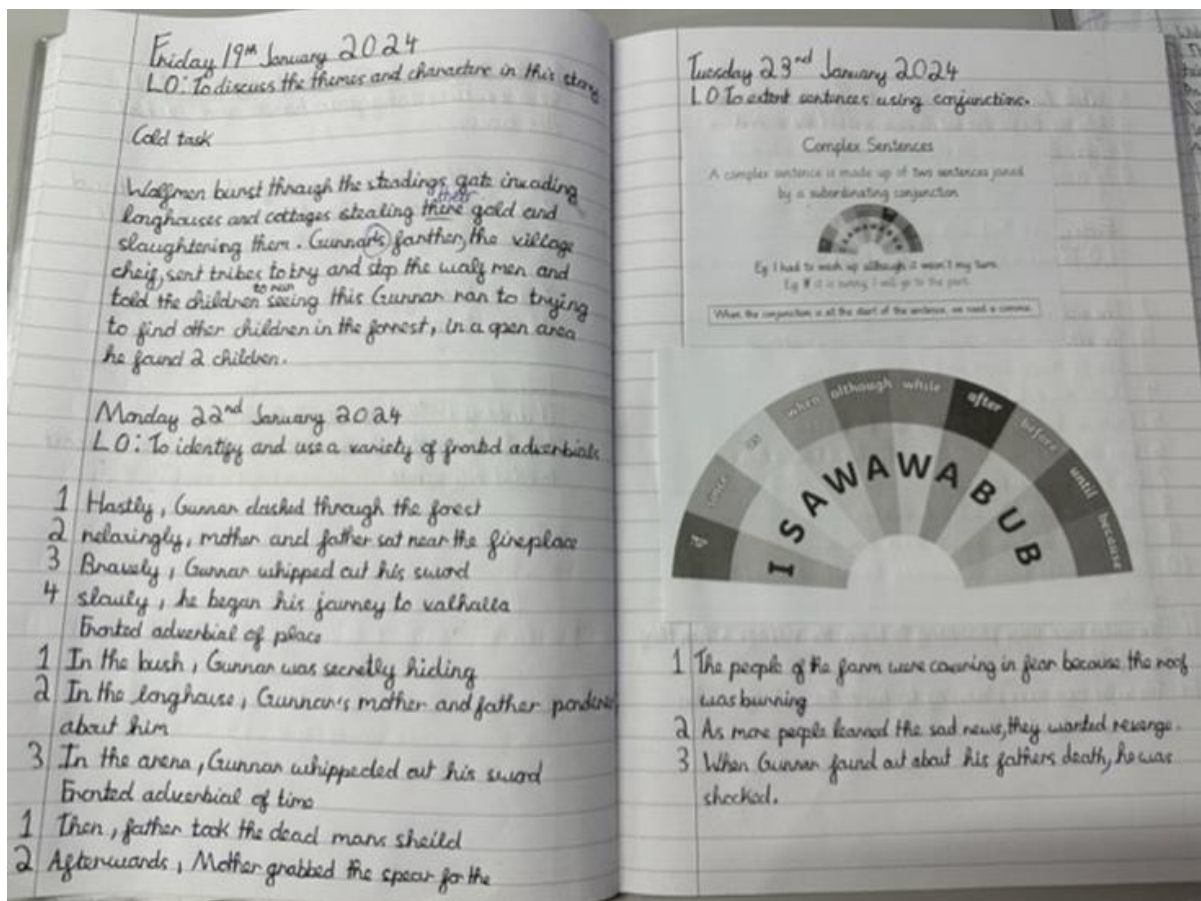 Friday 19th January 2024
LO: To discuss the themes and characters in this story
Cold task
Wolfmen burst through the steadings gate invading
their
longhouses and cottages stealing there gold and
slaughtening them. Gunnar's farther, the village
cheif, sent tribes to try and stop the wolf men and
to run
told the children seeing this Gunnar ran to trying
to find other children in the forrest, in a open area
he found 2 children.
Monday 22nd January 2024
LO: To identify and use a variety of fronted adverbials
1 Hastly, Gunnar dashed through the forest
2 relaxingly, mother and father sat near the fireplace
3 Bravely, Gunnar whipped out his sword
4 slowly, he began his journey to valhalla
Fronted adverbial of place
1 In the bush, Gunnar was secretly hiding
2 In the longhouse, Gunnar's mother and father pondered
about him
3 In the arena, Gunnar whippeded out his sword
Fronted adverbial of time
1 Then, father took the dead mans sheild
2 Afterwards, Mother grabbed the spear for the
Tuesday 23rd January 2024
LO To extent sentences using conjunctions.
Complex Sentences
A complex sentence is made up of two sentences joined
by a subordinating conjunction
Eg I had to wash up although it wasn't my turn.
Eg If it is sunny, I will go to the park.
When the conjunction is at the start of the sentence, we need a comma.
if since as when although while after before until because
I SAWAWABUB
1 The people of the farm were cowering in fear because the roof
was burning
2 As more people learned the sad news, they wanted revenge.
3 When Gunnar found out about his fathers death, he was
shocked.